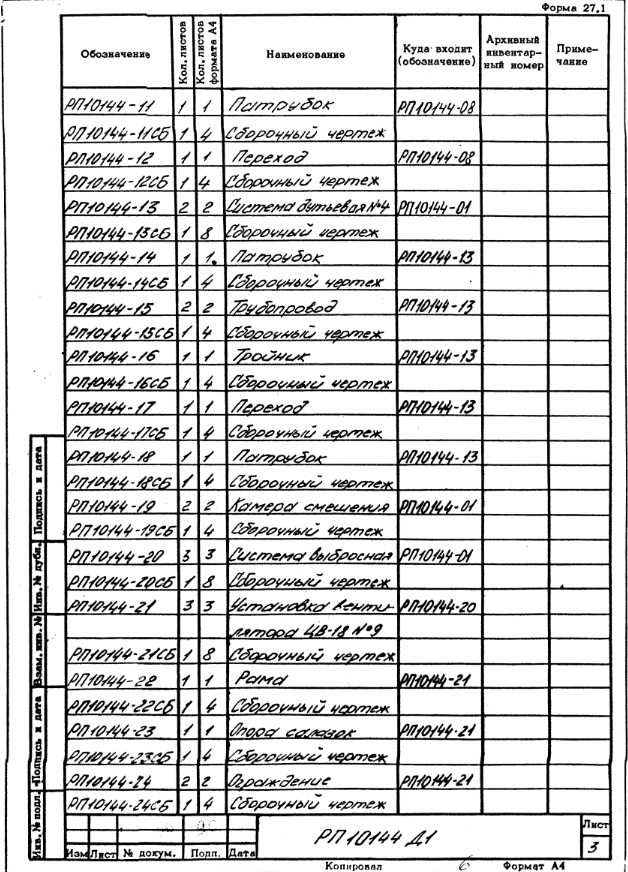 Форма 27.1
Обозначение Кол. листов Кол. листов формата А4 Наименование Куда входит (обозначение) Архивный инвентар-ный номер Приме-чание
РП10144-11 1 1 Патрубок РП10144-08
РП10144-11СБ 1 4 Сборочный чертеж
РП10144-12 1 1 Переход РП10144-08
РП10144-12СБ 1 4 Сборочный чертеж
РП10144-13 2 2 Система дутьевая №4 РП10144-01
РП10144-13СБ 1 8 Сборочный чертеж
РП10144-14 1 1 Патрубок РП10144-13
РП10144-14СБ 1 4 Сборочный чертеж
РП10144-15 2 2 Трубопровод РП10144-13
РП10144-15СБ 1 4 Сборочный чертеж
РП10144-16 1 1 Тройник РП10144-13
РП10144-16СБ 1 4 Сборочный чертеж
РП10144-17 1 1 Переход РП10144-13
РП10144-17СБ 1 4 Сборочный чертеж
РП10144-18 1 1 Патрубок РП10144-13
РП10144-18СБ 1 4 Сборочный чертеж
РП10144-19 2 2 Камера смешения РП10144-01
РП10144-19СБ 1 4 Сборочный чертеж
РП10144-20 3 3 Система выбросная РП10144-01
РП10144-20СБ 1 8 Сборочный чертеж
РП10144-21 3 3 Установка венти- РП10144-20
лятора ЦВ-18 №9
РП10144-21СБ 1 8 Сборочный чертеж
РП10144-22 1 1 Рама РП10144-21
РП10144-22СБ 1 4 Сборочный чертеж
РП10144-23 1 1 Опора салазок РП10144-21
РП10144-23СБ 1 4 Сборочный чертеж
РП10144-24 2 2 Ограждение РП10144-21
РП10144-24СБ 1 4 Сборочный чертеж
Инв. № подл. Подпись и дата Взам. инв. № Инв. № дубл. Подпись и дата
РП10144 Д1
Лист
3
Изм Лист № докум. Подп. Дата
Копировал 6 Формат А4